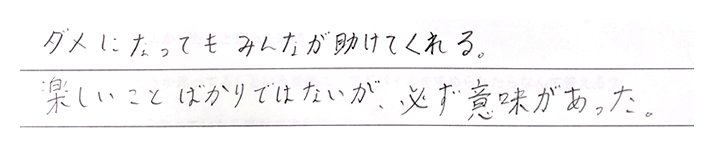 ダメになってもみんなが助けてくれる。
楽しいことばかりではないが、必ず意味があった。